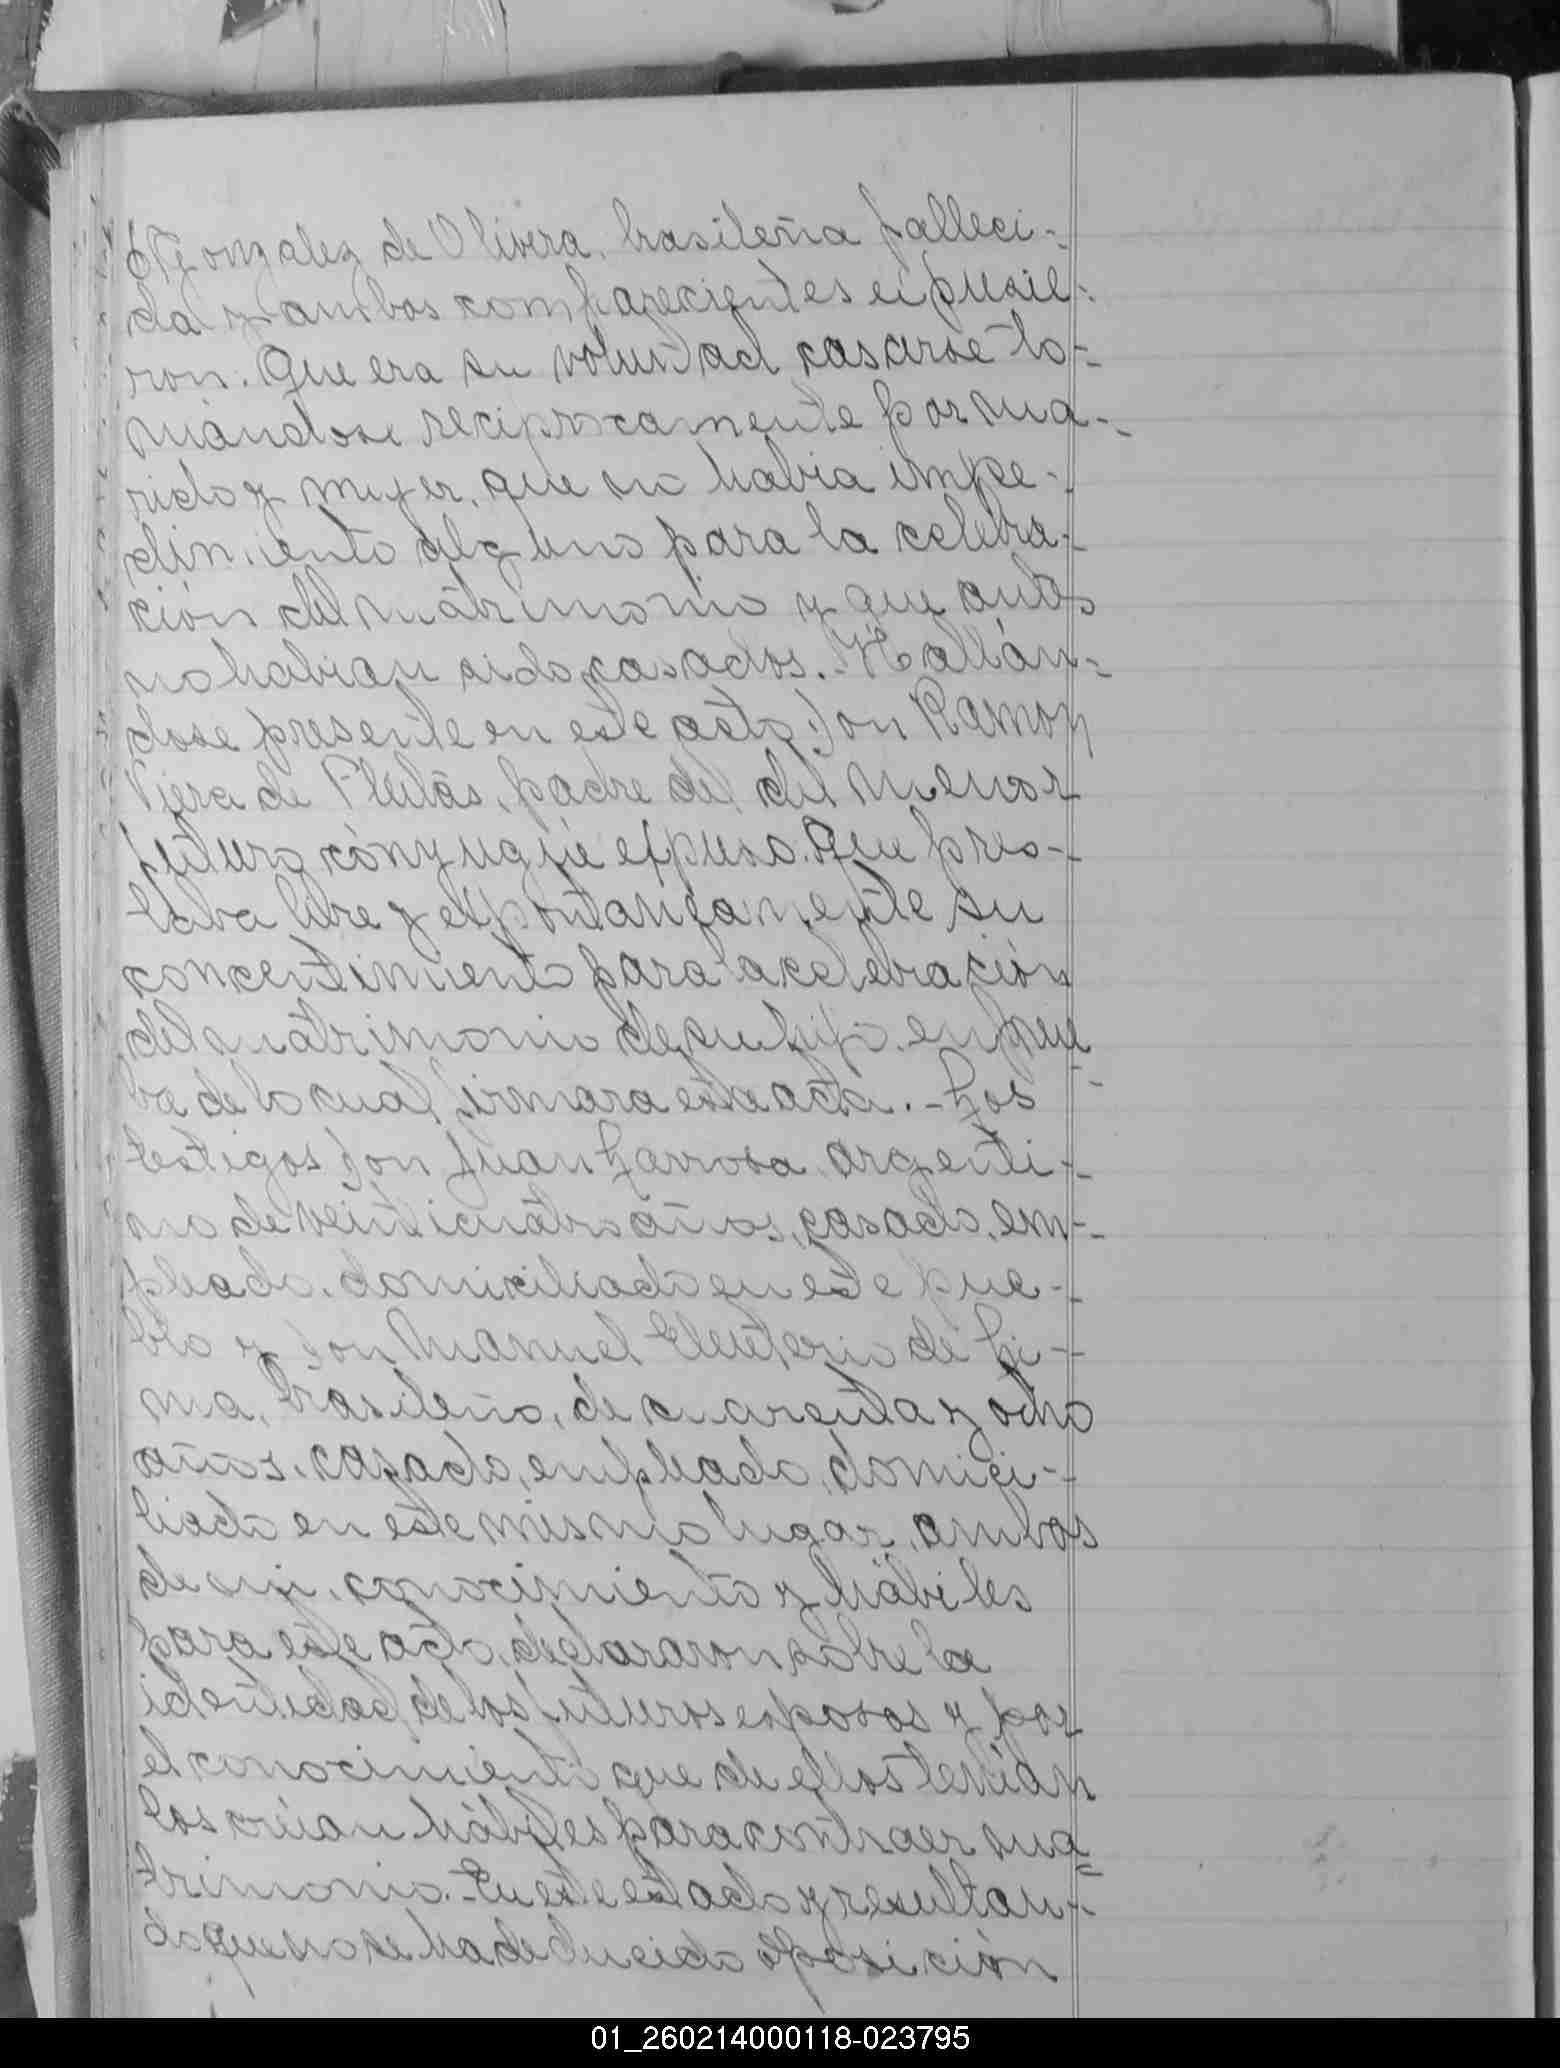 ó Gonzalez de Olivera, brasileña falleci-
da y ambos comparecientes expusie-
ron: Que era su voluntad casarse to-
mándose reciprocamente por ma-
rido y mujer, que no habia impe-
dimiento alguno para la celebra-
ción del matrimonio y que antes
no habian sido casados.- Hallán-
dose presente en este acto Don Ramon
Viera de Fleitas, padre del del menor
futuro cónyugüe expuso. Que pres-
taba libre y expontaneamente su
concentimiento para la celebración
del matrimonio de su hijo, en prue
ba de lo cual firmara esta acta.- Los
testigos Don Juan Larrosa argenti-
no de veinticuatro años, casado, em-
pleado, domiciliado en este pue-
blo y Don Manuel Eleuterio de Li-
ma, brasileño, de cuarenta y ocho
años, casado, empleado, domici-
liado en este mismo lugar, ambos
de mi conocimiento y hábiles
para este acto, declararon sobre la
identidad de los futuros esposos y por
el conocimiento que de ellos tenían
los creían hábiles para contraer ma
trimonio.- En este estado y resultan-
do que no se ha deducido oposición
01_260214000118-023795